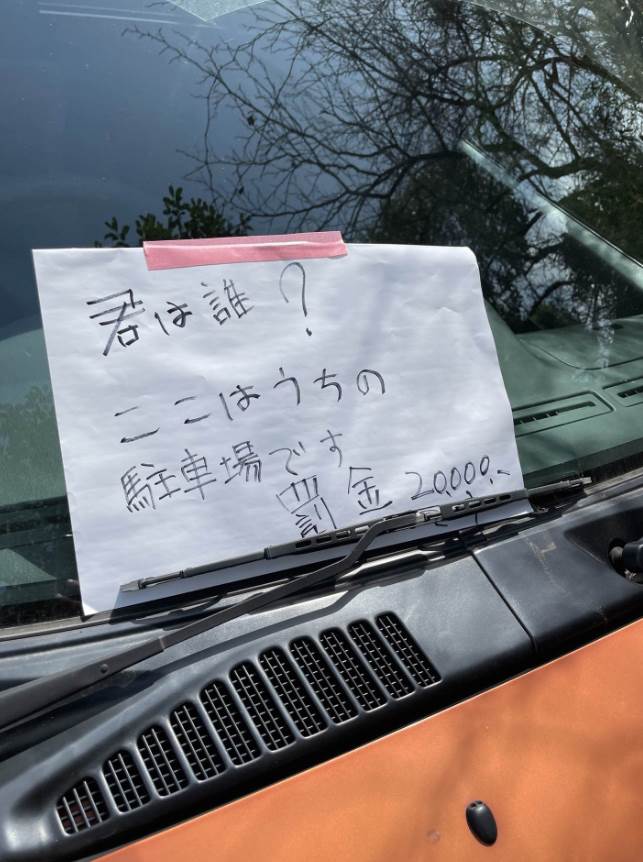 君は誰？
ここはうちの
駐車場です
罰金 20,000.-